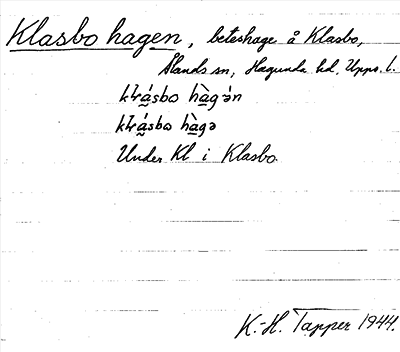 Klasbo hagen, beteshage å Klasbo,
Ålands sn, Hagunda hd, Upps. l.
klásbo hàgən
klásbo hàgə
Under Kl i Klasbo
K.-H. Tapper 1944.